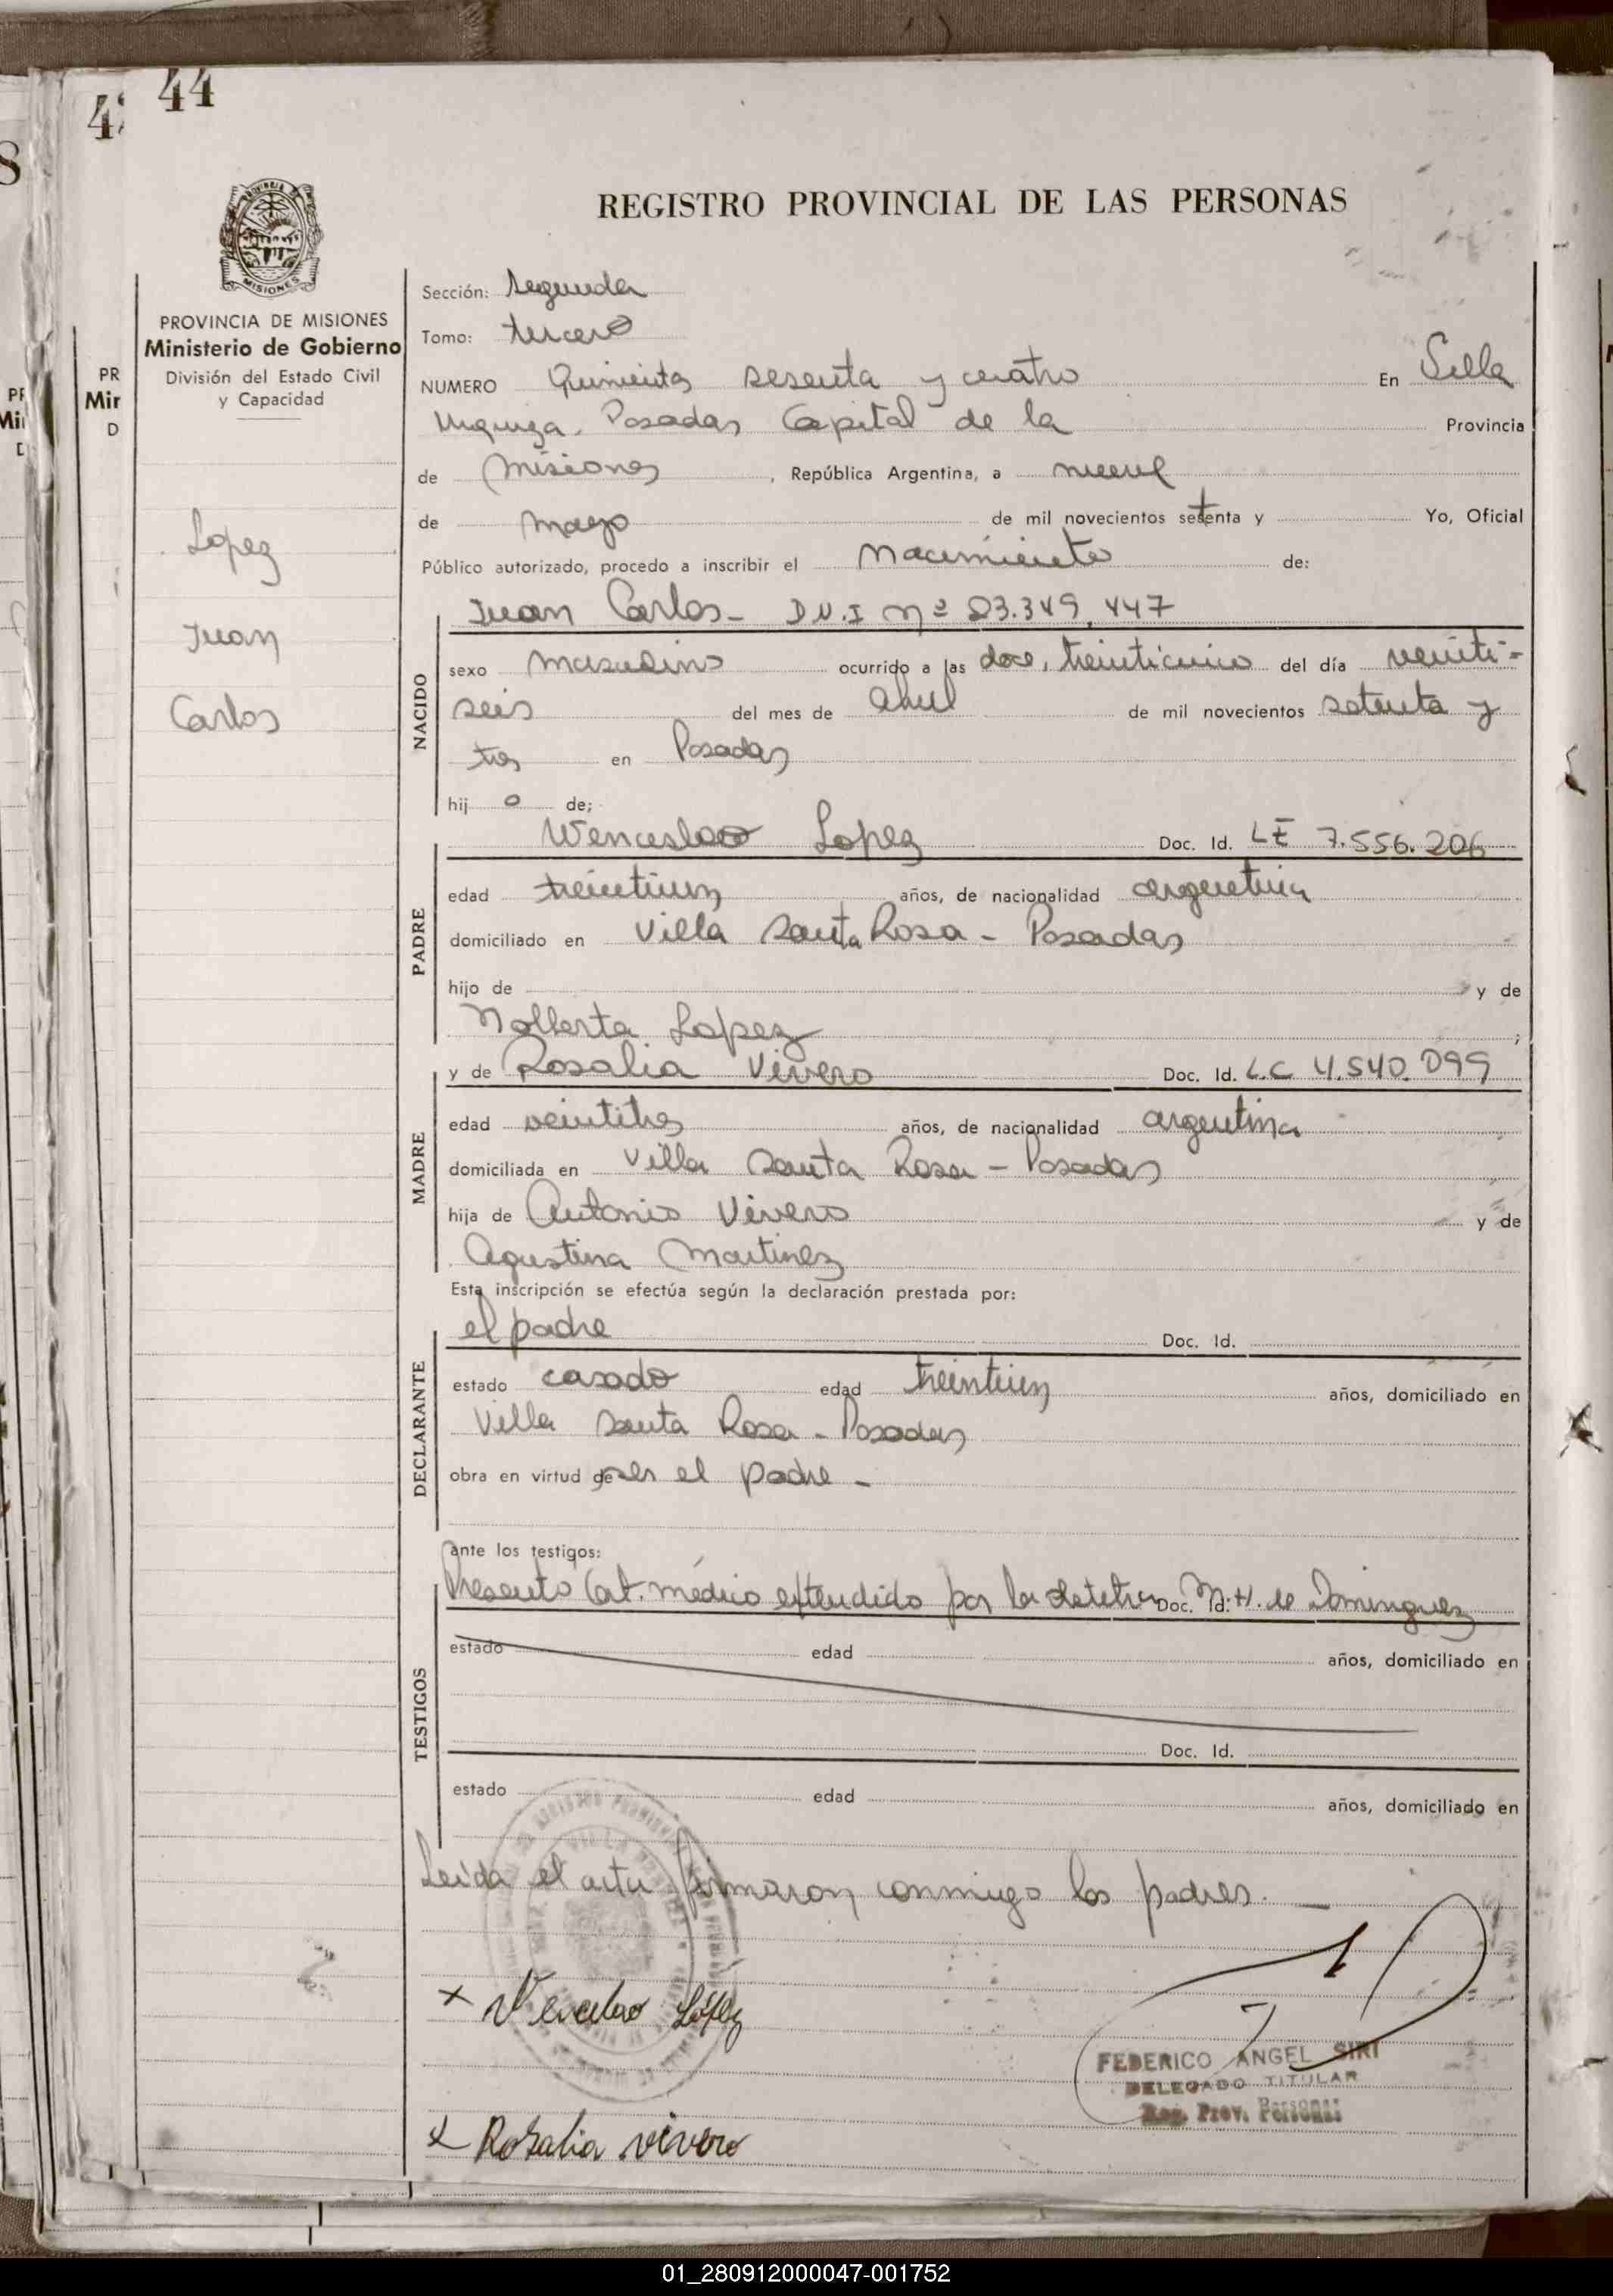 44
REGISTRO PROVINCIAL DE LAS PERSONAS
MISIONES
PROVINCIA DE MISIONES
Ministerio de Gobierno
División del Estado Civil
y Capacidad
Lopez
Juan
Carlos
Sección: Segunda
Tomo: tercero
NUMERO Quinientos sesenta y cuatro En Villa
Urquiza. Posadas Capital de la Provincia
de Misiones, República Argentina, a nueve
de mayo de mil novecientos setenta y Yo, Oficial
Público autorizado, procedo a inscribir el Nacimiento de:
Juan Carlos - D.N.I Nº 23.349.447
NACIDO
sexo masculino ocurrido a las doce, treinticinco del día veinti-
seis del mes de abril de mil novecientos setenta y
tres en Posadas
hij o de;
Wenceslao Lopez Doc. Id. LE 7.556.206
PADRE
edad treintiun años, de nacionalidad argentina
domiciliado en Villa Santa Rosa - Posadas
hijo de y de
Lopez ;
y de Rosalia Vivero Doc. Id. L.C 4.540.099
MADRE
edad veintitres años, de nacionalidad argentina
domiciliada en Villa Santa Rosa - Posadas
hija de Antonio Vivero y de
Agustina Martinez
Esta inscripción se efectúa según la declaración prestada por:
el padre Doc. Id.
DECLARANTE
estado casado edad treintiun años, domiciliado en
Villa Santa Rosa - Posadas
obra en virtud de ser el padre -
ante los testigos:
Presento Cert. médico extendido por la Obstetra Doc. Id. M. H. de Dominguez
TESTIGOS
estado edad años, domiciliado en
Doc. Id.
estado edad años, domiciliado en
Leída el acta firmaron conmigo los padres. —
x Wenceslao López
FEDERICO ANGEL SIRI
DELEGADO TITULAR
Reg. Prov. Personas
x Rosalia vivero
01_280912000047-001752